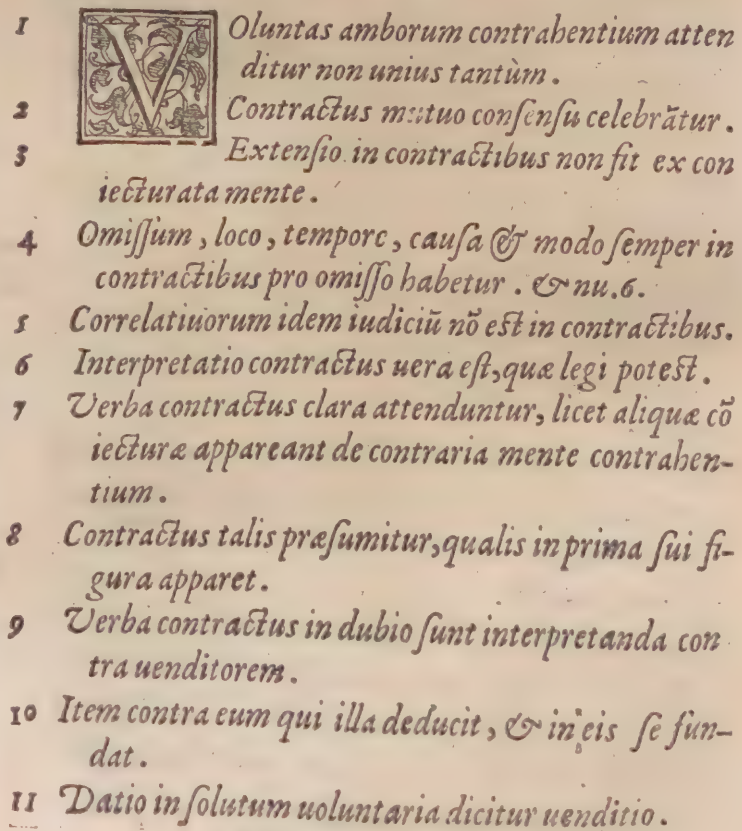 1 VOluntas amborum contrahentium atten
ditur non unius tantùm.
2 Contractus mutuo consensu celebrātur.
3 Extensio in contractibus non fit ex con
iecturata mente.
4 Omissum, loco, tempore, causa & modo semper in
contractibus pro omisso habetur. & nu.6.
5 Correlatiuorum idem iudiciū nō est in contractibus.
6 Interpretatio contractus uera est, quæ legi potest.
7 Verba contractus clara attenduntur, licet aliquæ cō
iecturæ appareant de contraria mente contrahen-
tium.
8 Contractus talis præsumitur, qualis in prima sui fi-
gura apparet.
9 Verba contractus in dubio sunt interpretanda con
tra uenditorem.
10 Item contra eum qui illa deducit, & in eis se fun-
dat.
11 Datio in solutum uoluntaria dicitur uenditio.